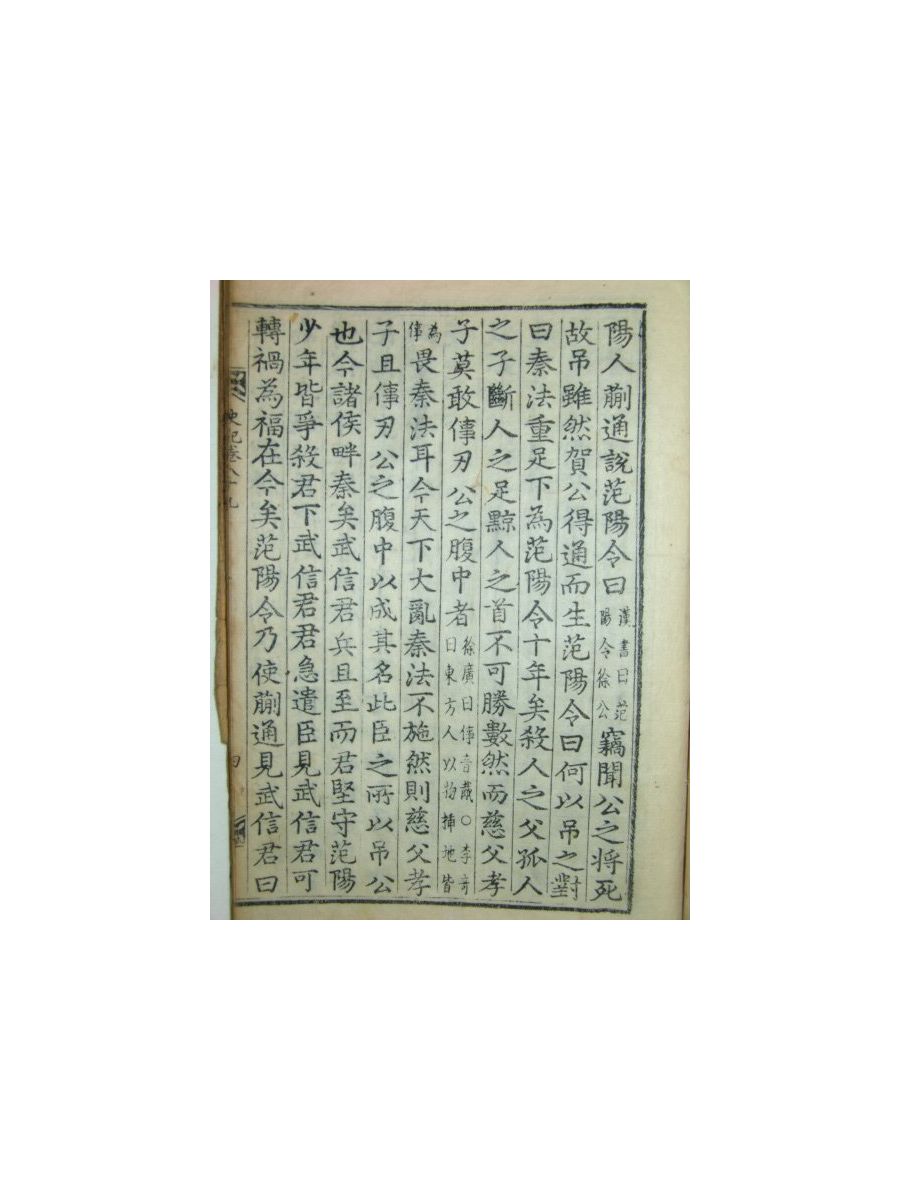 陽人蒯通說范陽令曰漢書曰范陽令徐公竊聞公之將死
故吊雖然賀公得通而生范陽令曰何以吊之對
曰秦法重足下為范陽令十年矣殺人之父孤人
之子斷人之足黥人之首不可勝數然而慈父孝
子莫敢倳刃公之腹中者徐廣曰倳音胾○李奇曰東方人以物揷地皆
為倳畏秦法耳今天下大亂秦法不施然則慈父孝
子且倳刃公之腹中以成其名此臣之所以吊公
也今諸侯畔秦矣武信君兵且至而君堅守范陽
少年皆爭殺君下武信君君急遣臣見武信君可
轉禍為福在今矣范陽令乃使蒯通見武信君曰
史記卷八十九
四